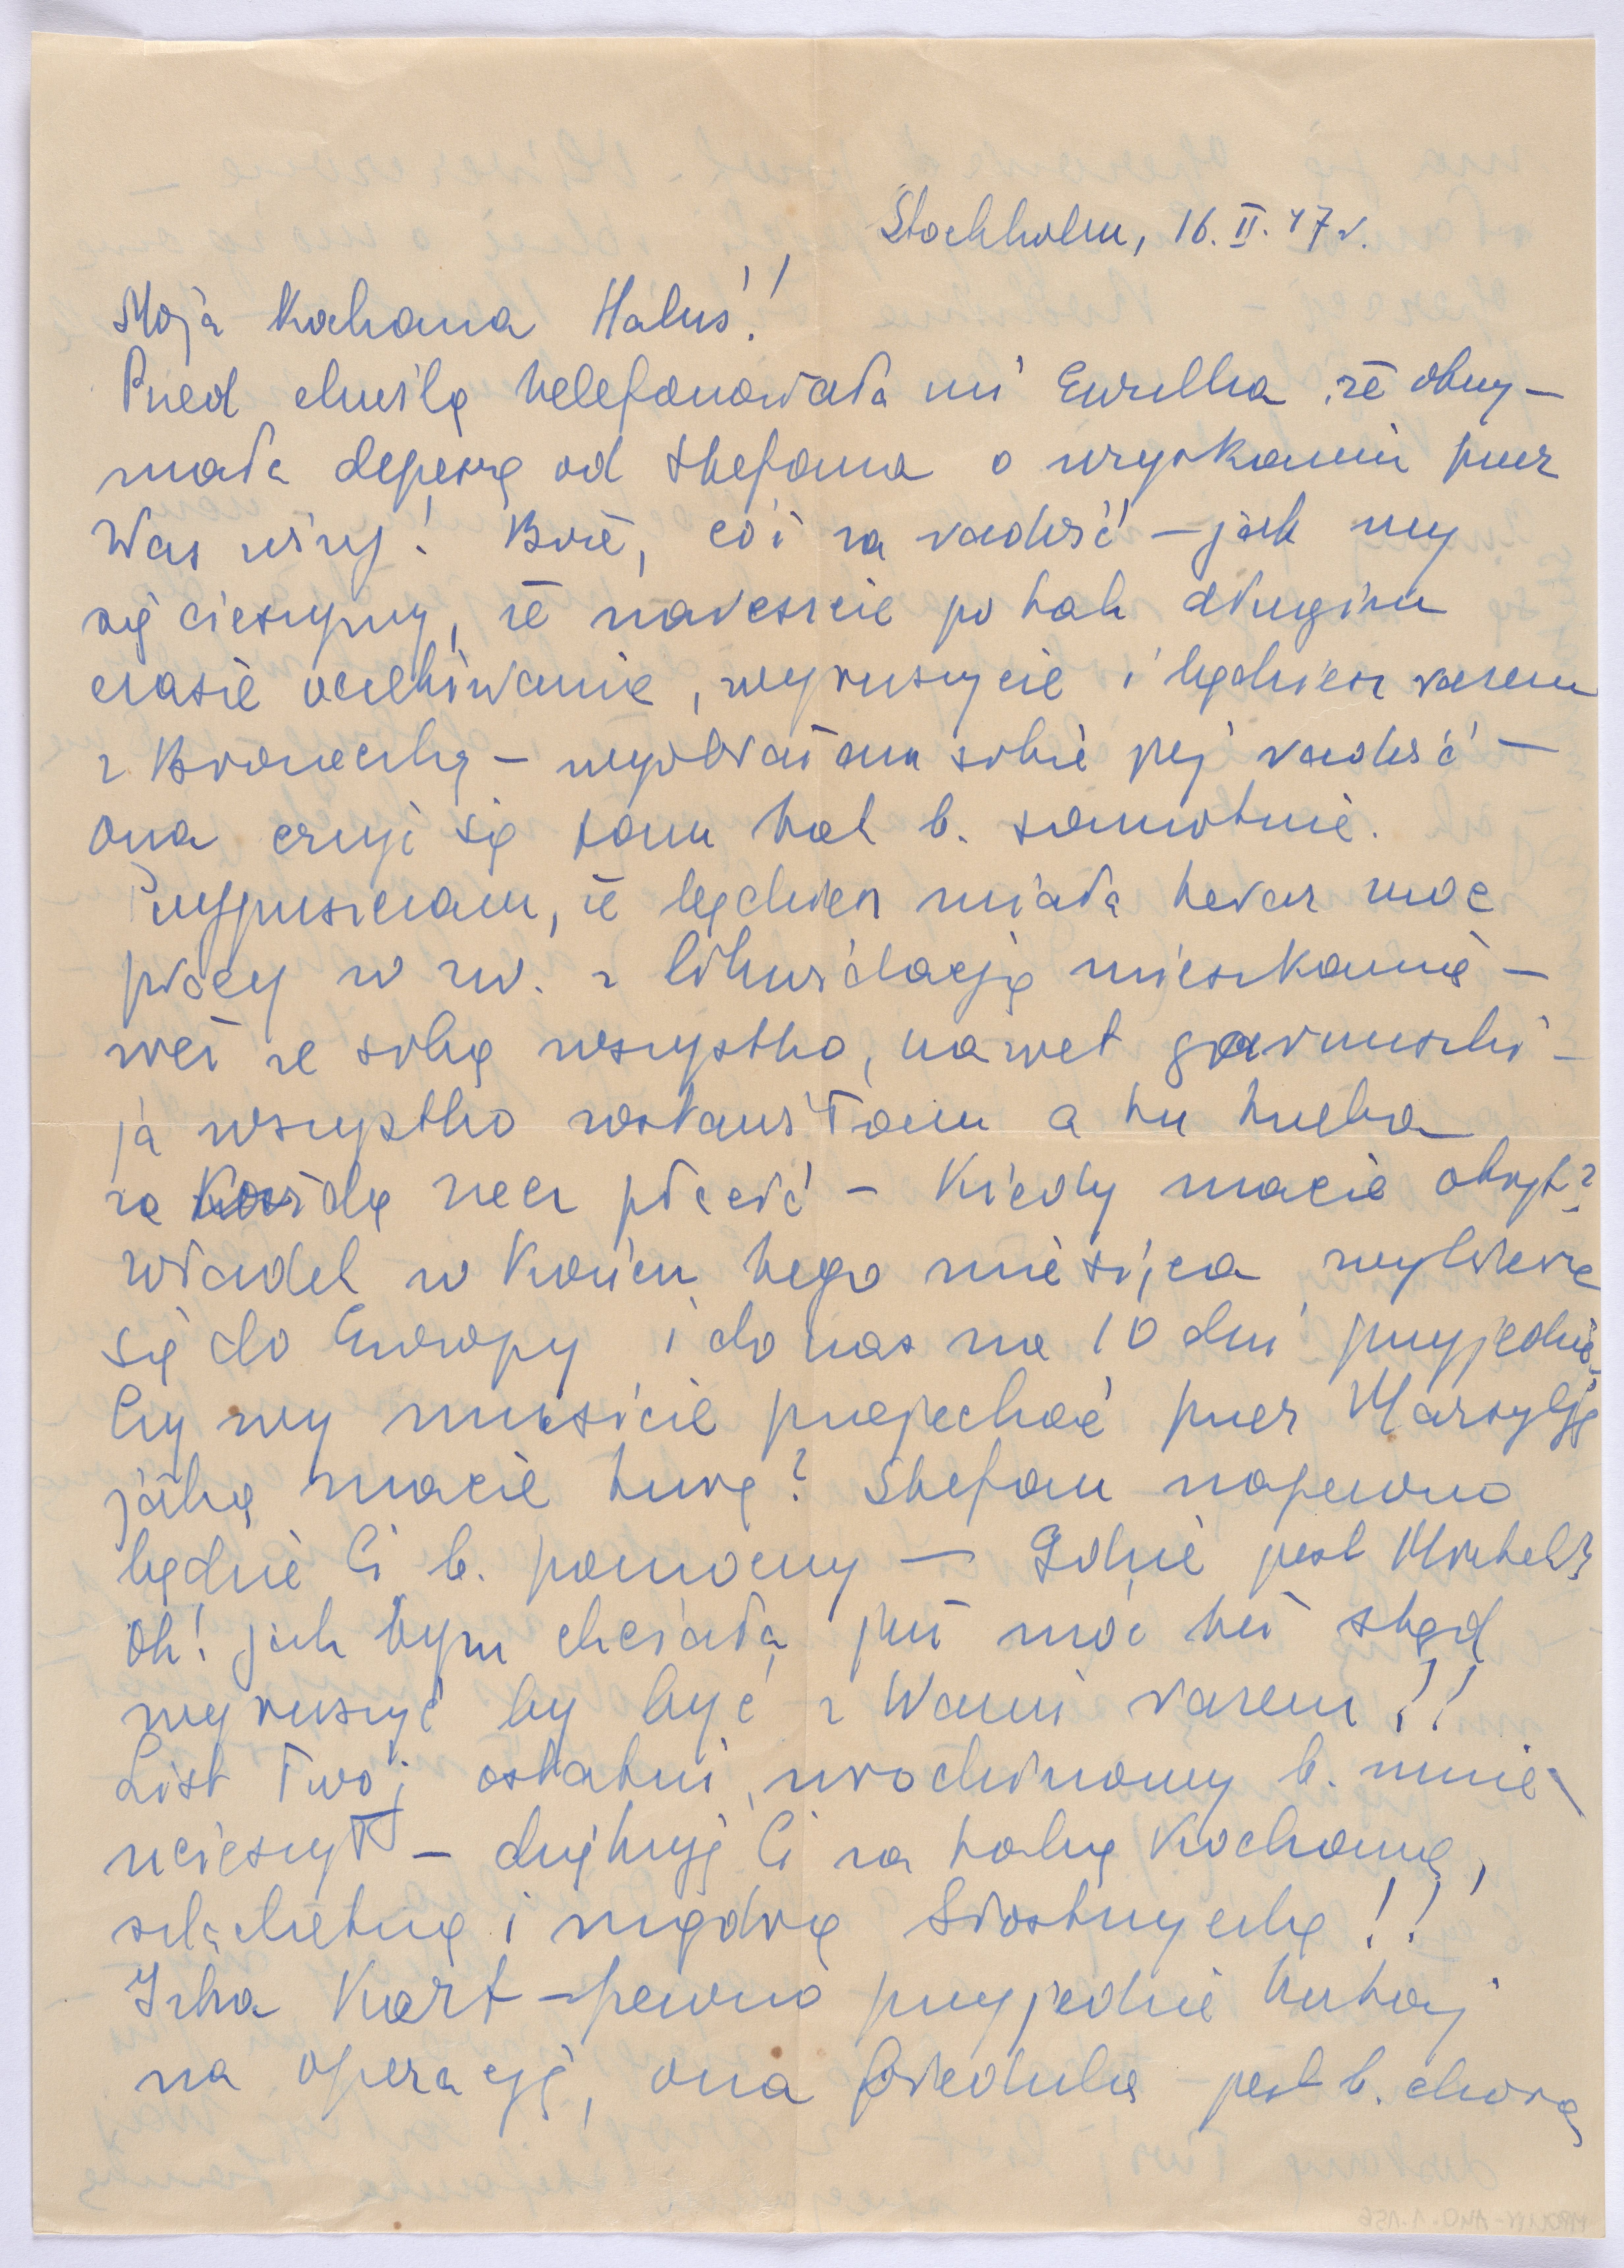 Stockholm, 16. II. 47 r.
Moja Kochana Haluś!
Przed chwilą telefonowała mi że otrzy-
mała depeszę od Stefana o uzyskaniu przez
Was wizy! Boże, cóż za radość – jak my
się cieszymy, że nareszcie po tak długim
czasie oczekiwania, wyruszycie i będziesz razem
z Broneczką – wyobrażam sobie jej radość –
ona czuje się tam tak b. samotnie.
Przypuszczam, że będziesz miała teraz moc
pracy w zw. z likwidacją mieszkania –
weź ze sobą wszystko, nawet garnuszki –
ja wszystko zostawiłam a tu trzeba
za każdą rzecz płacić – Kiedy macie okręt?
Władek w końcu tego miesiąca wybiera
się do Europy i do nas na 10 dni przyjedzie
Czy wy musicie przejechać przez Marsylję
jaką macie turę? Stefan napewno
będzie Ci b. pomocny – Gdzie jest
Oh! jak bym chciała już móc też stąd
wyruszyć by być z Wami razem!!
List Twój ostatni, urodzinowy b. mnie
ucieszył – dziękuję Ci za taką Kochaną,
szlachetną i mądrą Siostrzyczkę!!
Irka – pewno przyjedzie tutaj
na operację, ona biedulka – jest b. chora